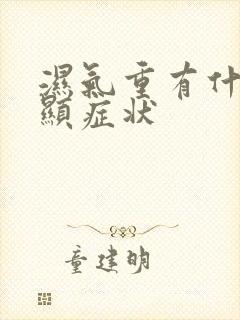 濕氣重有什
顯症狀
童建明